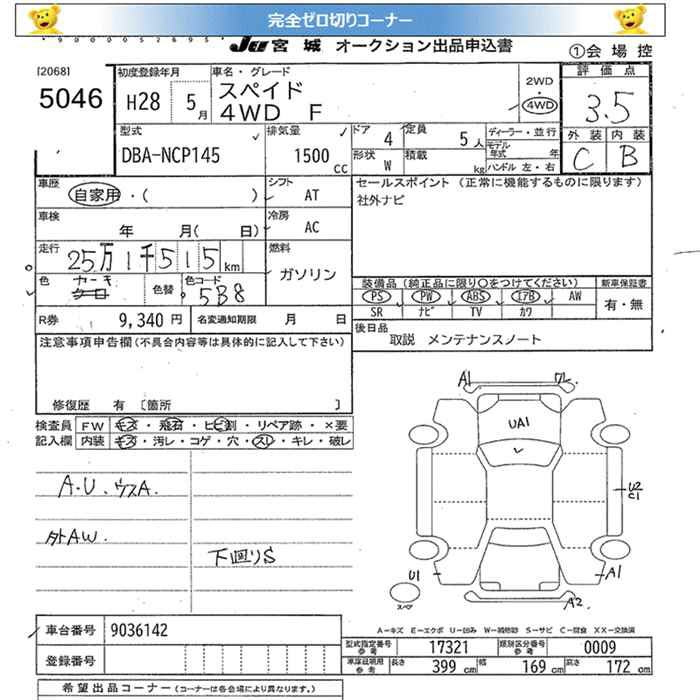 完全ゼロ切りコーナー
JU 宮城 オークション出品申込書
①会場控
[2068]
5046
初度登録年月
H28 5月
車名・グレード
スペイド
4WD F
2WD
4WD
評価点
3.5
外装 内装
C B
型式
DBA-NCP145
排気量
1500 CC
ドア 4
定員 5人
ディーラー・並行
モデル年式 年
形状 W
積載 kg
ハンドル 左・右
車歴
自家用・( )
シフト
AT
セールスポイント (正常に機能するものに限ります)
社外ナビ
車検
年 月( 日)
冷房
AC
走行
25万1千515km
燃料
ガソリン
色
カーキ
色替
色コード
5B8
装備品(純正品に限り○をつけてください)
新車保証書
PS PW ABS エアB AW
有・無
SR ナビ TV カワ
R券 9,340円
名変通知期限 月 日
後日品
取説 メンテナンスノート
注意事項申告欄(不具合内容等は具体的に記入して下さい)
修復歴 有 [箇所 ]
検査員記入欄
FW キズ・飛石・ヒビ割・リペア跡・×要
内装 キズ・汚レ・コゲ・穴・スレ・キレ・破レ
A・U・ウスA.
外AW.
下回りS
A1
UA1
U2
C1
U1
A1
A2
スペア
A―キズ E―エクボ U―凹み W―補修跡 S―サビ C―腐食 XX―交換済
車台番号 9036142
登録番号
型式指定番号 参考 17321
類別区分番号 参考 0009
車庫証明用 参考 長さ 399 cm 幅 169 cm 高さ 172 cm
希望出品コーナー(コーナーは各会場により異なります。)